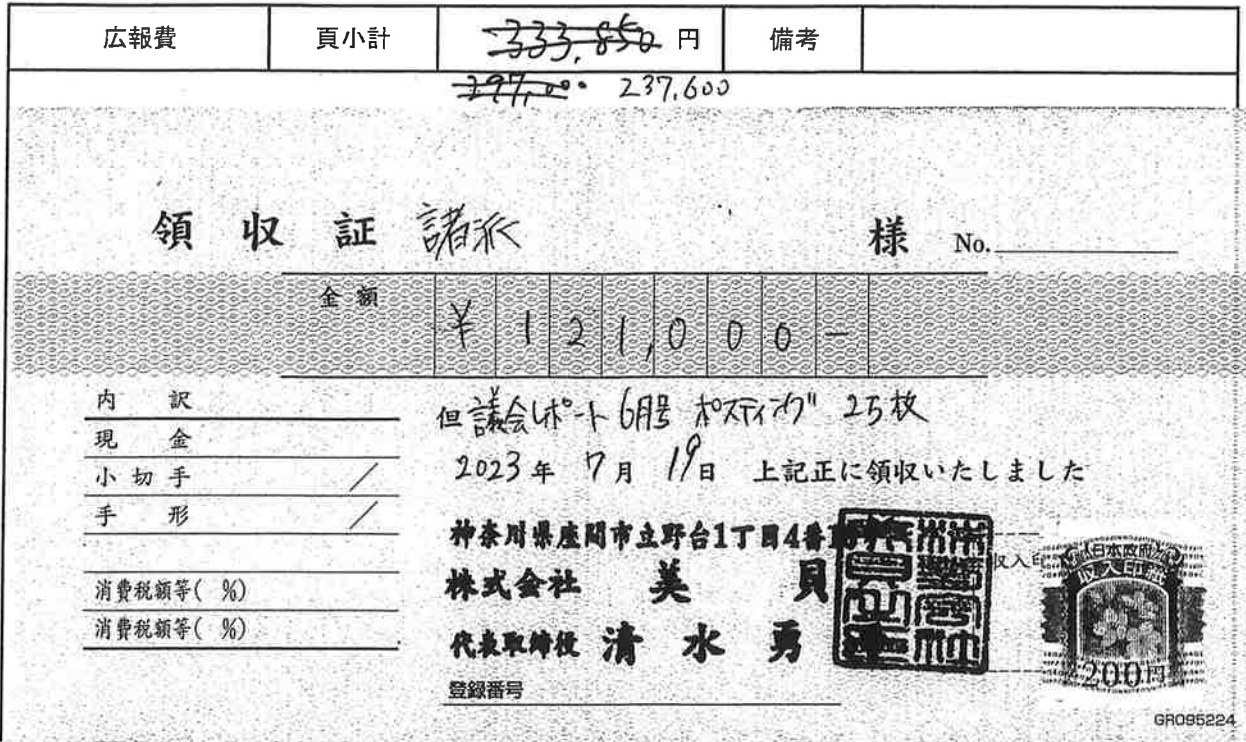 広報費 頁小計 333,850 円 備考
297,000 237,600
領収証 諸派 様 No.
金額 ¥121,000-
内訳
現金
小切手
手形
消費税額等( %)
消費税額等( %)
但 議会レポート 6月号 ポスティング 25枚
2023年 7月 19日 上記正に領収いたしました
神奈川県座間市立野台1丁目4番
株式会社 美貝
代表取締役 清水勇
登録番号
日本政府
収入印紙
200円
GR095224